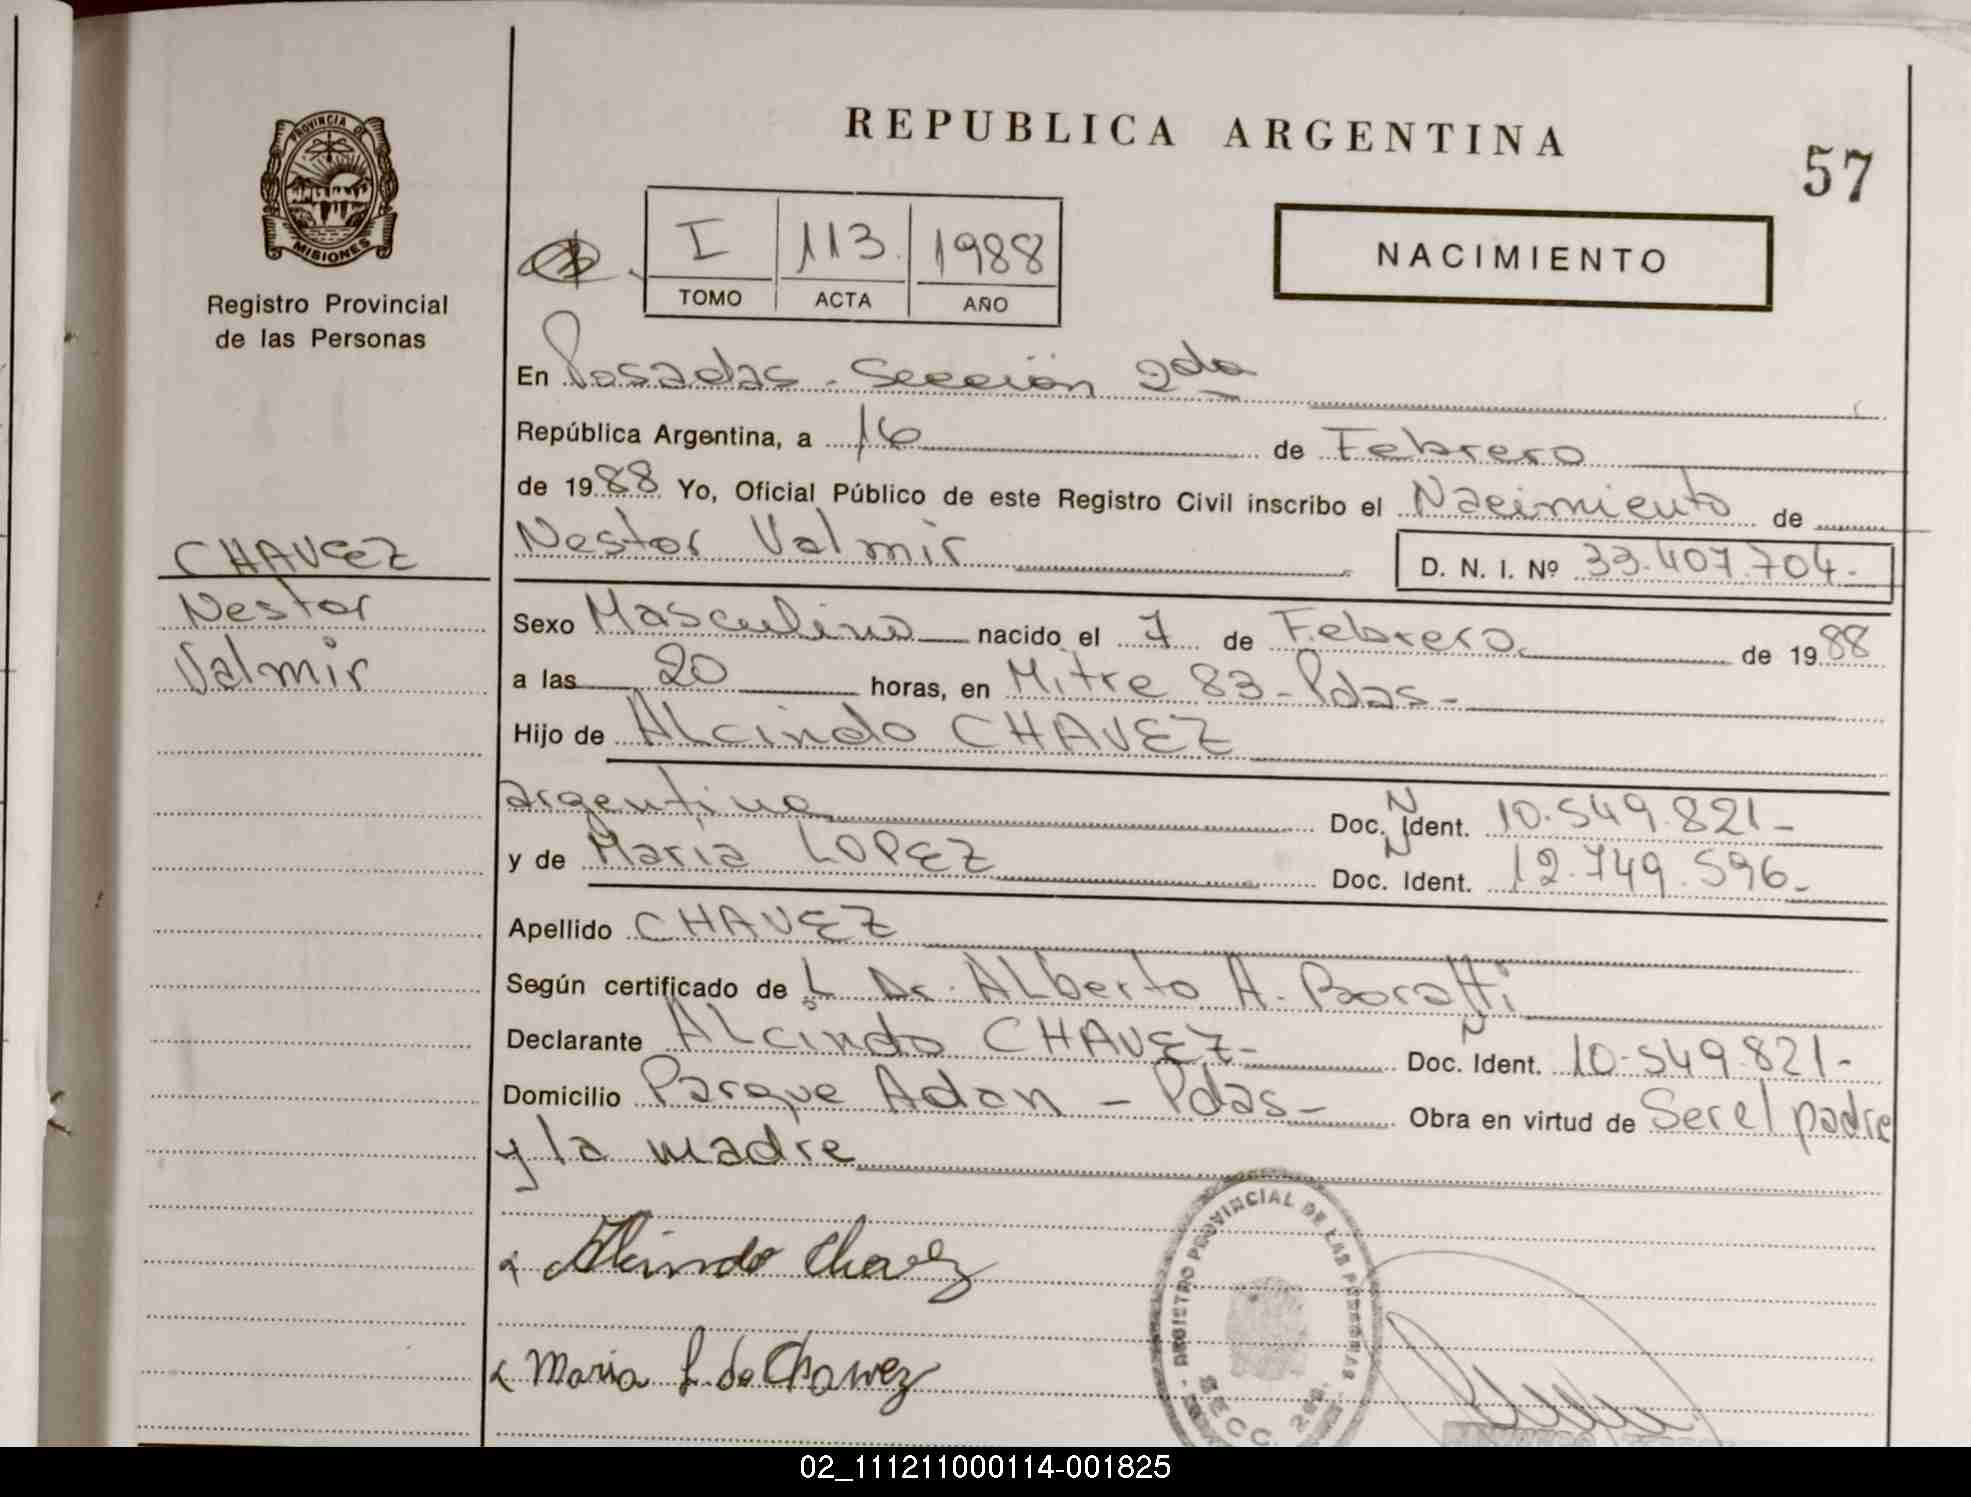 REPUBLICA ARGENTINA
57
PROVINCIA DE
MISIONES
Registro Provincial
de las Personas
I 113. 1988
TOMO ACTA AÑO
NACIMIENTO
En Posadas - Sección 2da
República Argentina, a 16 de Febrero
de 1988 Yo, Oficial Público de este Registro Civil inscribo el Nacimiento de
Nestor Valmir D. N. I. Nº 33.407.704.-
CHAVEZ
Nestor
Valmir
Sexo Masculino nacido el 7 de Febrero de 1988
a las 20 horas, en Mitre 83 - Pdas -
Hijo de Alcindo CHAVEZ
argentino Doc. N Ident. 10.549.821 -
y de Maria LOPEZ Doc. N Ident. 12.749.596 -
Apellido CHAVEZ
Según certificado de L Dr. Alberto A. Boratti
Declarante Alcindo CHAVEZ - Doc. N Ident. 10.549.821 -
Domicilio Parque Adan - Pdas - Obra en virtud de Ser el padre
y la madre
Alcindo Chavez
Maria L. de Chavez
REGISTRO PROVINCIAL DE LAS PERSONAS
SECC. 2da.
02_111211000114-001825